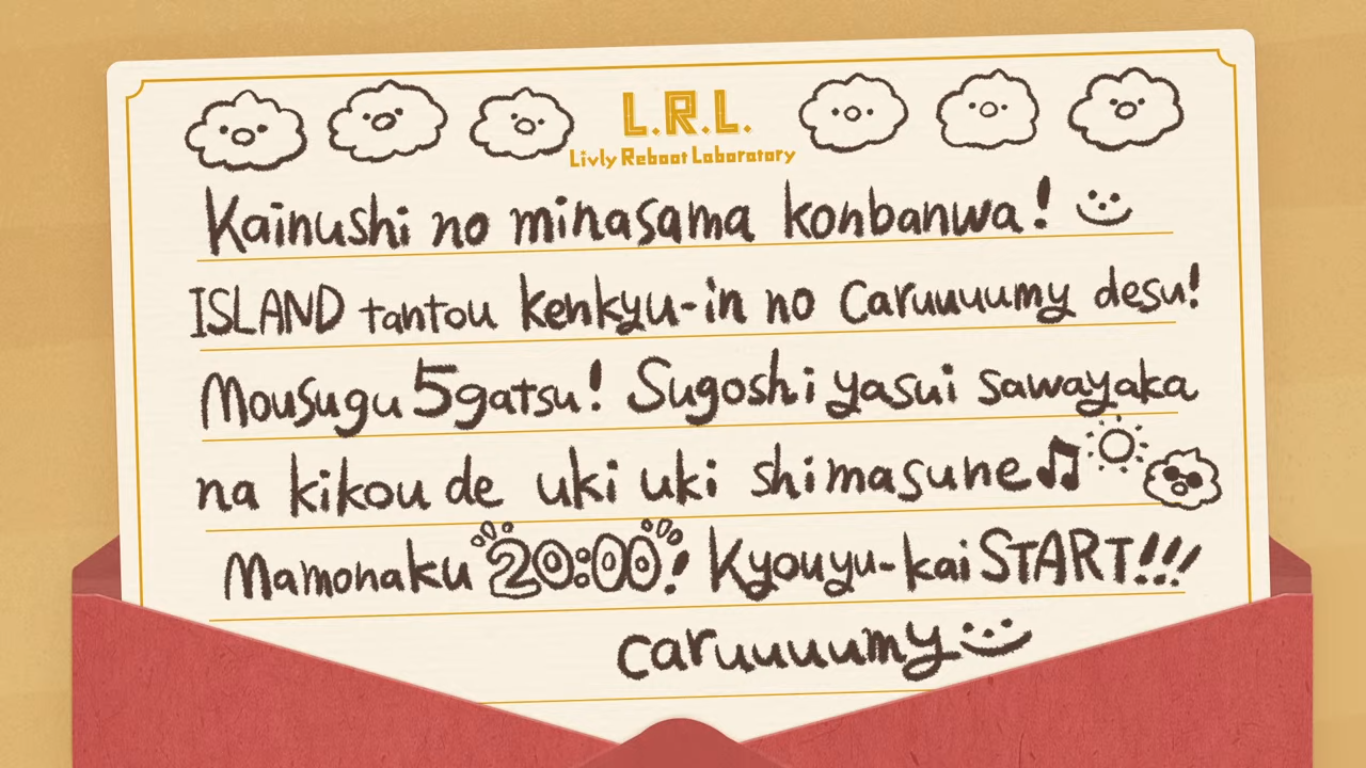 L.R.L.
Livly Reboot Laboratory
Kainushi no minasama konbanwa!
ISLAND tantou kenkyu-in no Caruuuumy desu!
Mousugu 5gatsu! Sugoshiyasui sawayaka
na kikou de uki uki shimasune♫
Mamonaku 20:00! Kyouyu-kai START!!!
caruuuumy